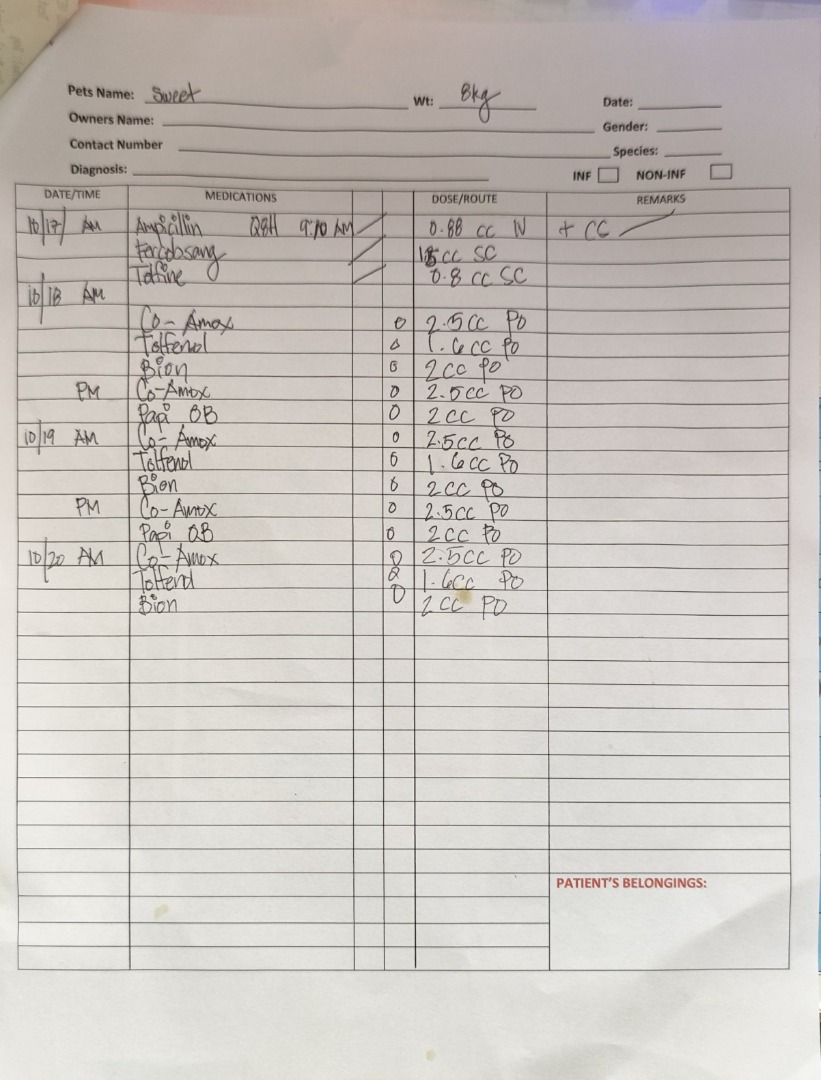 Pets Name: Sweet Wt: 8kg Date:
Owners Name: Gender:
Contact Number Species:
Diagnosis: INF NON-INF
DATE/TIME MEDICATIONS DOSE/ROUTE REMARKS
10/17/ AM Ampicillin Q8H 9:10 AM 0.88 cc IV + CC
cc SC
Tolfine 0.8 cc SC
10/18 AM
Co-Amox 0 2.5cc PO
Tolfenol 0 1.6cc PO
Bion 0 2cc PO
PM Co-Amox 0 2.5cc PO
Papi OB 0 2cc PO
10/19 AM Co-Amox 0 2.5cc PO
Tolfenol 0 1.6cc PO
Bion 0 2cc PO
PM Co-Amox 0 2.5cc PO
Papi OB 0 2cc PO
10/20 AM Co-Amox 0 2.5cc PO
Tolfenol 0 1.6cc PO
Bion 0 2cc PO
PATIENT'S BELONGINGS: